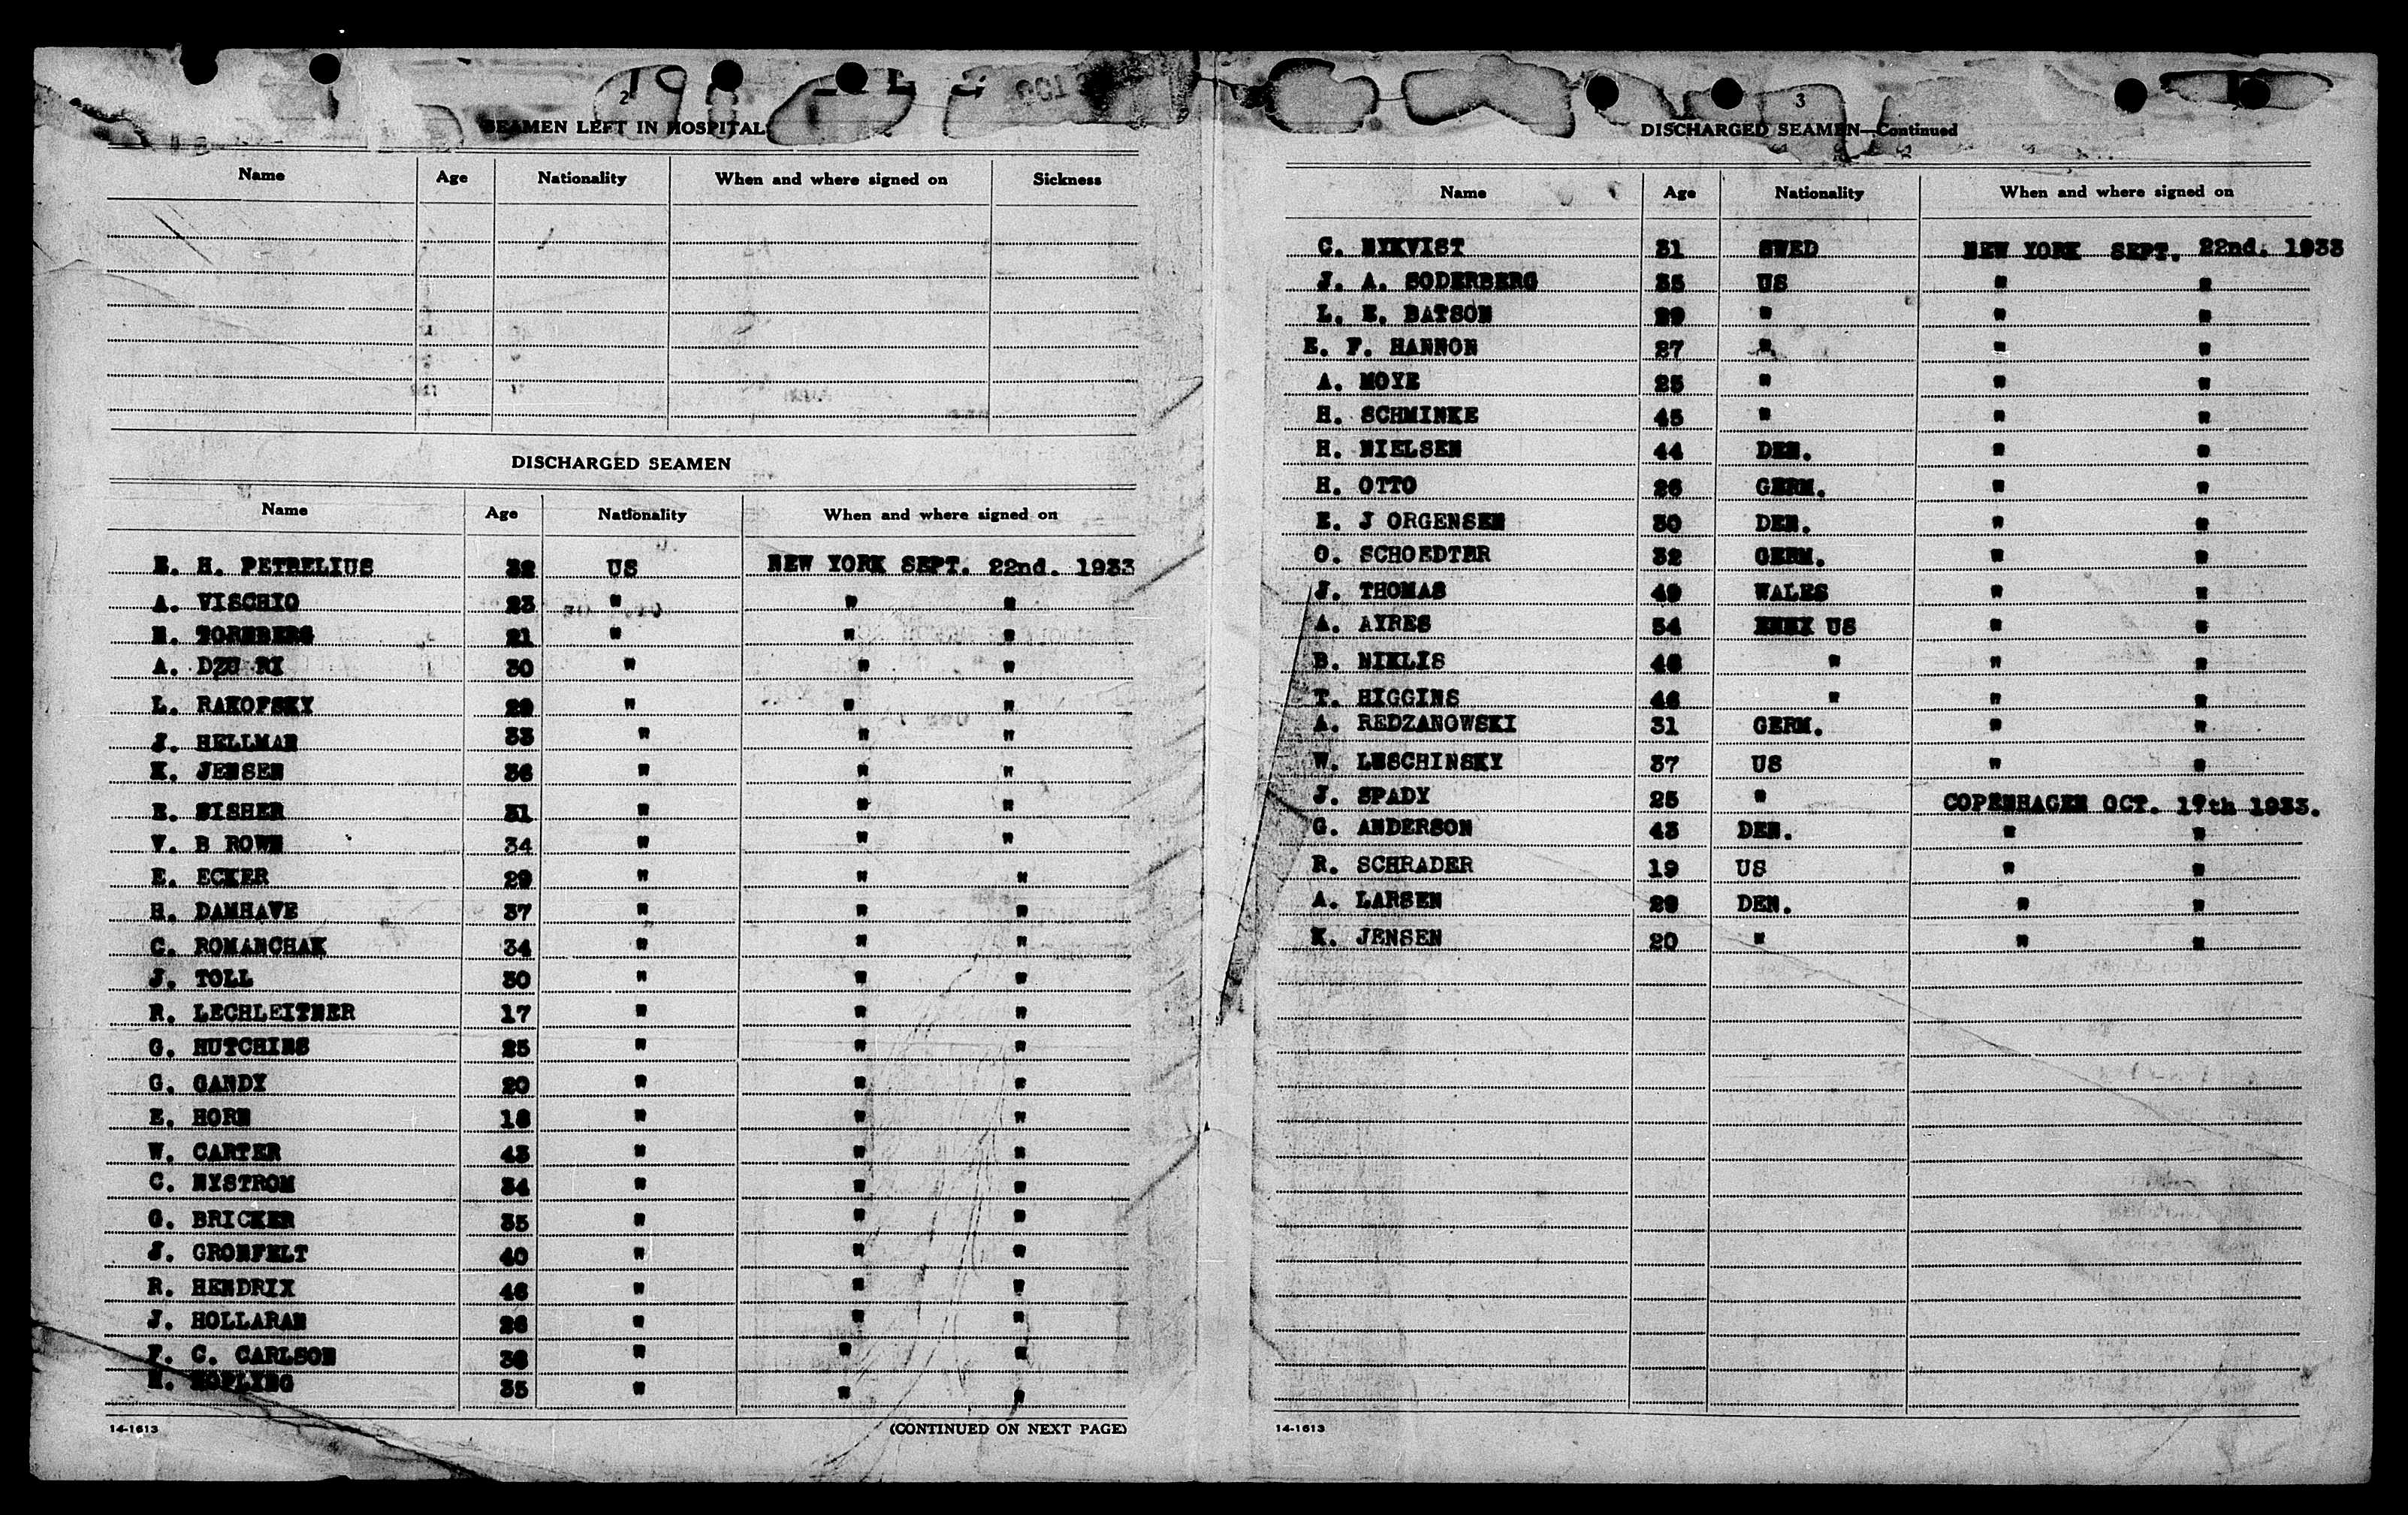 2
SEAMEN LEFT IN HOSPITAL
Name Age Nationality When and where signed on Sickness
DISCHARGED SEAMEN
Name Age Nationality When and where signed on
E. H. PETRELIUS 32 US NEW YORK SEPT. 22nd. 1933
A. VISCHIO 23 " " "
TORNBERG 21 " " "
A. DZU RI 30 " " "
L. RAKOFSKY 29 " " "
J. HELLMAN 33 " " "
K. JENSEN 36 " " "
31 " " "
V. B ROWN 34 " " "
E. ECKER 29 " " "
H. DAMHAVE 37 " " "
C. ROMANCHAK 34 " " "
J. TOLL 30 " " "
R. LECHLEITNER 17 " " "
G. HUTCHINS 25 " " "
G. GANDY 20 " " "
E. HORN 18 " " "
W. CARTER 43 " " "
C. NYSTROM 34 " " "
G. BRICKER 35 " " "
J. GRONFELT 40 " " "
R. HENDRIX 46 " " "
J. HOLLARAN 26 " " "
F. C. CARLSON 36 " " "
35 " " "
14-1613 (CONTINUED ON NEXT PAGE)
3
DISCHARGED SEAMEN—Continued
Name Age Nationality When and where signed on
C. NYKVIST 31 SWED NEW YORK SEPT. 22nd. 1933
J. A. SODERBERG 35 US " "
L. E. BATSON 29 " " "
E. F. HANNON 27 " " "
A. MOYE 25 " " "
H. SCHMINKE 45 " " "
H. NIELSEN 44 DEN. " "
H. OTTO 26 GERM. " "
E. J ORGENSEN 30 DEN. " "
O. SCHOEDTER 32 GERM. " "
J. THOMAS 49 WALES " "
A. AYRES 34 US " "
B. NIKLIS 48 " " "
T. HIGGINS 46 " " "
A. REDZANOWSKI 31 GERM. " "
W. LESCHINSKY 37 US " "
J. SPADY 25 " COPENHAGEN OCT. 17th 1933.
G. ANDERSON 43 DEN. " "
R. SCHRADER 19 US " "
A. LARSEN 29 DEN. " "
K. JENSEN 20 " " "
14-1613